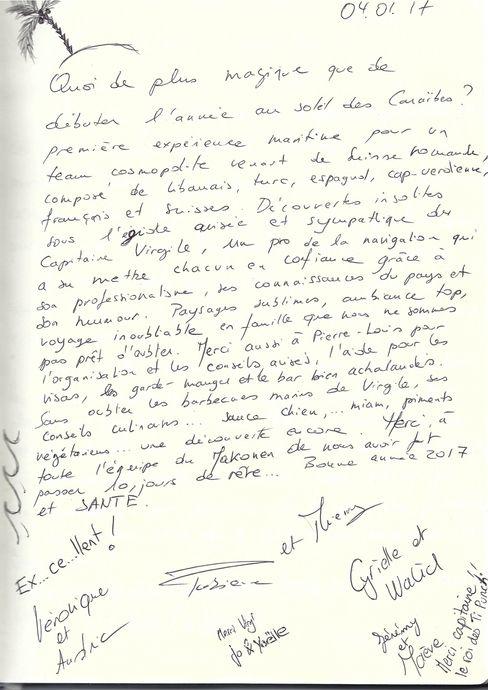 04.01.17
Quoi de plus magique que de
débuter l'année au soleil des Caraïbes ?
première expérience maritime pour un
team cosmopolite venant de Suisse romande,
composé de libanais, turc, espagnol, cap-verdienne,
français et suisses. Découvertes insolites
sous l'égide avisée et sympathique du
Capitaine Virgile, un pro de la navigation qui
a su mettre chacun en confiance grâce à
son professionalisme, ses connaissances du pays et
son humour. Paysages sublimes, ambiance top,
voyage inoubliable en famille que nous ne sommes
pas prêt d'oublier. Merci aussi à Pierre-Louis pour
l'organisation et les conseils avisés, l'aide pour les
visas, les garde-manger et le bar bien achalandés.
Sans oublier les barbecues marins de Virgile, ses
conseils culinaires... sauce chien,... miam, piments
végétariens... une découverte encore. Merci à
toute l'équipe du Makonen de nous avoir fait
passer 10 jours de rêve... Bonne année 2017
et SANTE.
Ex...ce...llent !
Véronique
et
et Thierry
Merci Virgi
Jo & Yaëlle
Cyrielle et
Walid
Jérémy
et
Maëva
Merci capitaine !!
le roi des Ti Punch !